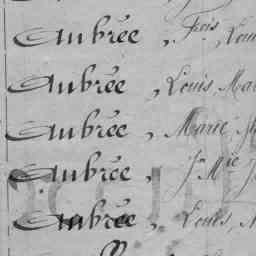 Aubrée, Fois, Lou
Aubrée, Louis, Ma
Aubrée, Marie, J
Aubrée, Jn Mie J
Aubrée, Louis,